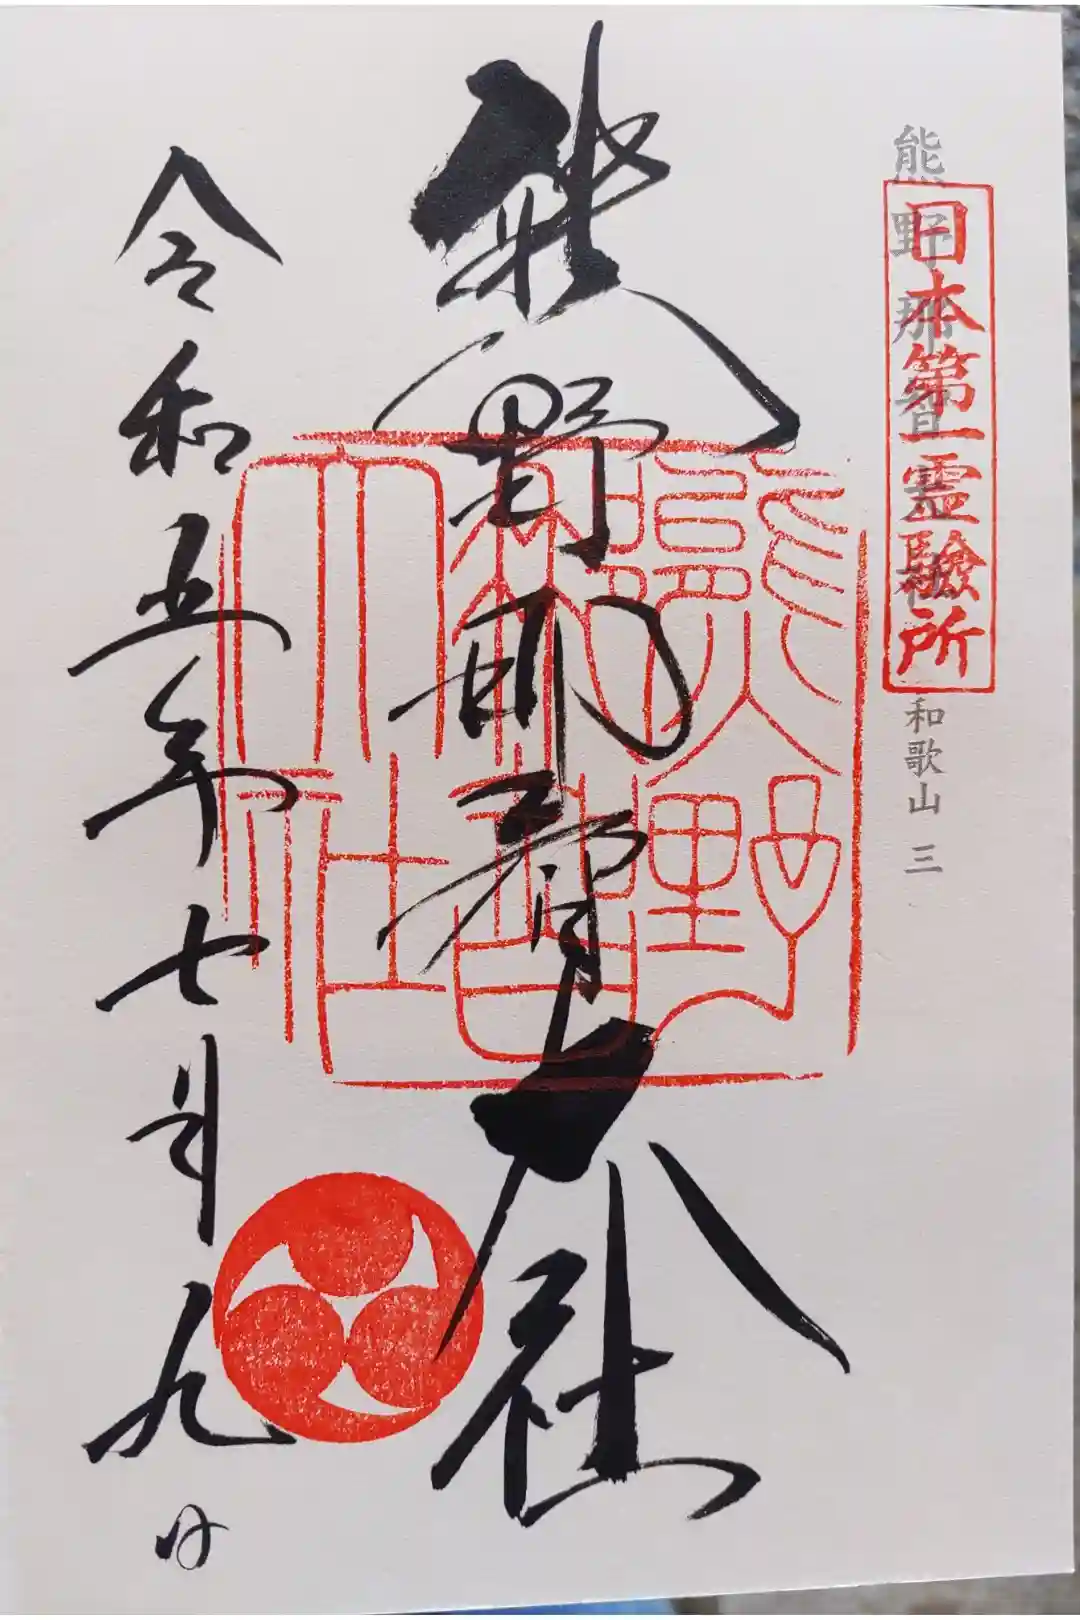 熊野那智大社
和歌山 三
日本第一霊験所
熊野那智大社
熊野
那智
大社
令和五年七月九日